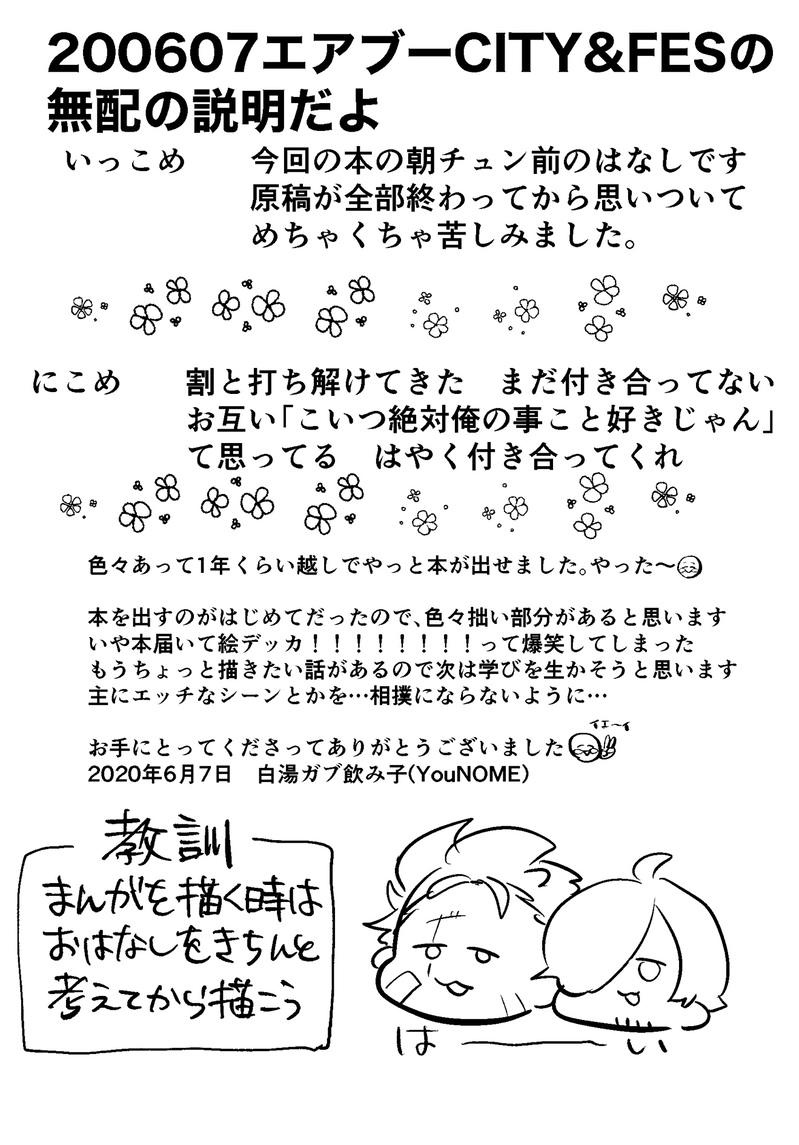 200607エアブーCITY&FESの
無配の説明だよ
いっこめ　今回の本の朝チュン前のはなしです
原稿が全部終わってから思いついて
めちゃくちゃ苦しみました。
にこめ　割と打ち解けてきた　まだ付き合ってない
お互い「こいつ絶対俺の事こと好きじゃん」
て思ってる　はやく付き合ってくれ
色々あって1年くらい越しでやっと本が出せました。やった〜
本を出すのがはじめてだったので、色々拙い部分があると思います
いや本届いて絵デッカ！！！！！！！！って爆笑してしまった
もうちょっと描きたい話があるので次は学びを生かそうと思います
主にエッチなシーンとかを…相撲にならないように…
イエーイ
お手にとってくださってありがとうございました
2020年6月7日　白湯ガブ飲み子(YouNOME)
教訓
まんがを描く時は
おはなしをきちんと
考えてから描こう
は――い